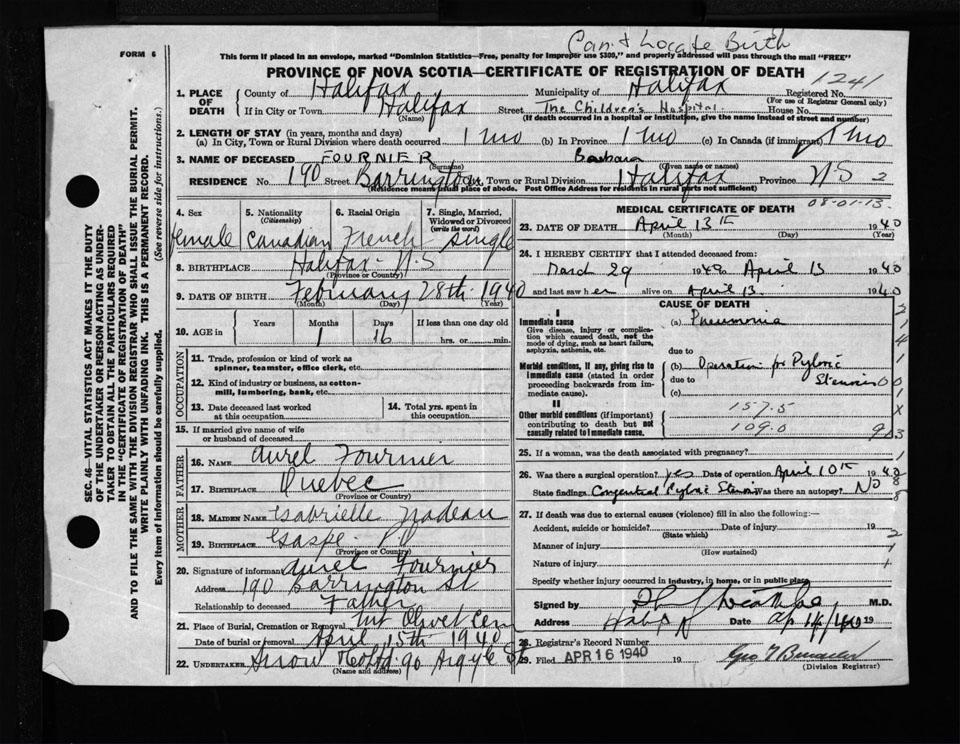 Can't Locate Birth
FORM 6
This form if placed in an envelope, marked "Dominion Statistics—Free, penalty for improper use $300," and properly addressed will pass through the mail "FREE"
PROVINCE OF NOVA SCOTIA—CERTIFICATE OF REGISTRATION OF DEATH
1241
1. PLACE OF DEATH
County of Halifax Municipality of Halifax Registered No.
(For use of Registrar General only)
If in City or Town Halifax Street The Children's Hospital House No.
(Name) (If death occurred in a hospital or institution, give the name instead of street and number)
2. LENGTH OF STAY (in years, months and days)
(a) In City, Town or Rural Division where death occurred 1 mo (b) In Province 1 mo (c) In Canada (if immigrant) 1 mo
3. NAME OF DECEASED FOURNIER Barbara
(Surname) (Given name or names)
RESIDENCE No. 190 Street Barrington City, Town or Rural Division Halifax Province N S 2
Residence means usual place of abode. Post Office Address for residents in rural parts not sufficient)
08-01-13.
4. Sex female
5. Nationality (Citizenship) Canadian
6. Racial Origin French
7. Single, Married, Widowed or Divorced (write the word) Single
8. BIRTHPLACE Halifax N.S
(Province or Country)
9. DATE OF BIRTH February 28th 1940
(Month) (Day) (Year)
10. AGE in Years Months Days If less than one day old
1 16 hrs. or min.
OCCUPATION
11. Trade, profession or kind of work as spinner, teamster, office clerk, etc.
12. Kind of industry or business, as cotton-mill, lumbering, bank, etc.
13. Date deceased last worked at this occupation
14. Total yrs. spent in this occupation
15. If married give name of wife or husband of deceased
FATHER
16. NAME Aurel Fournier
17. BIRTHPLACE Quebec
(Province or Country)
MOTHER
18. MAIDEN NAME Gabrielle Nadeau
19. BIRTHPLACE Gaspe
(Province or Country)
20. Signature of informant Aurel Fournier
Address 190 Barrington St
Relationship to deceased Father
21. Place of Burial, Cremation or Removal Mt Olivet Cem
Date of burial or removal April 15th 1940
22. UNDERTAKER Snow & Co Ltd 90 Argyle St
(Name and address)
MEDICAL CERTIFICATE OF DEATH
23. DATE OF DEATH April 13th 1940
(Month) (Day) (Year)
24. I HEREBY CERTIFY that I attended deceased from:
March 29 1940 to April 13 1940
and last saw her alive on April 13 1940
CAUSE OF DEATH
I
Immediate cause
Give disease, injury or complication which caused death, not the mode of dying, such as heart failure, asphyxia, asthenia, etc.
(a) Pneumonia
due to
Morbid conditions, if any, giving rise to immediate cause (stated in order proceeding backwards from immediate cause).
(b) Operation for Pyloric Stenosis
due to
(c)
II
Other morbid conditions (if important) contributing to death but not causally related to immediate cause.
157.5
109.0
25. If a woman, was the death associated with pregnancy?
26. Was there a surgical operation? yes Date of operation April 10th 1940
State findings Congenital Pyloric Stenosis Was there an autopsy? No
27. If death was due to external causes (violence) fill in also the following:—
Accident, suicide or homicide? Date of injury 19
(State which)
Manner of injury
(How sustained)
Nature of injury
Specify whether injury occurred in industry, in home, or in public place
Signed by M.D.
Address Halifax Date Ap 14/40 19
28. Registrar's Record Number
29. Filed APR 16 1940 19
(Division Registrar)
SEC. 46—VITAL STATISTICS ACT MAKES IT THE DUTY
OF THE UNDERTAKER OR PERSON ACTING AS UNDER-
TAKER TO OBTAIN ALL THE PARTICULARS REQUIRED
IN THE "CERTIFICATE OF REGISTRATION OF DEATH"
AND TO FILE THE SAME WITH THE DIVISION REGISTRAR WHO SHALL ISSUE THE BURIAL PERMIT.
WRITE PLAINLY WITH UNFADING INK. THIS IS A PERMANENT RECORD.
Every item of information should be carefully supplied. (See reverse side for instructions.)